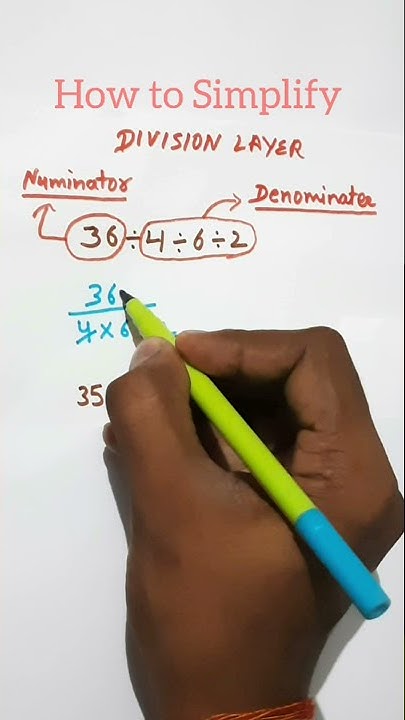 How to Simplify
DIVISION LAYER
Numinator
Denominater
36÷4÷6÷2
36
4×6
35